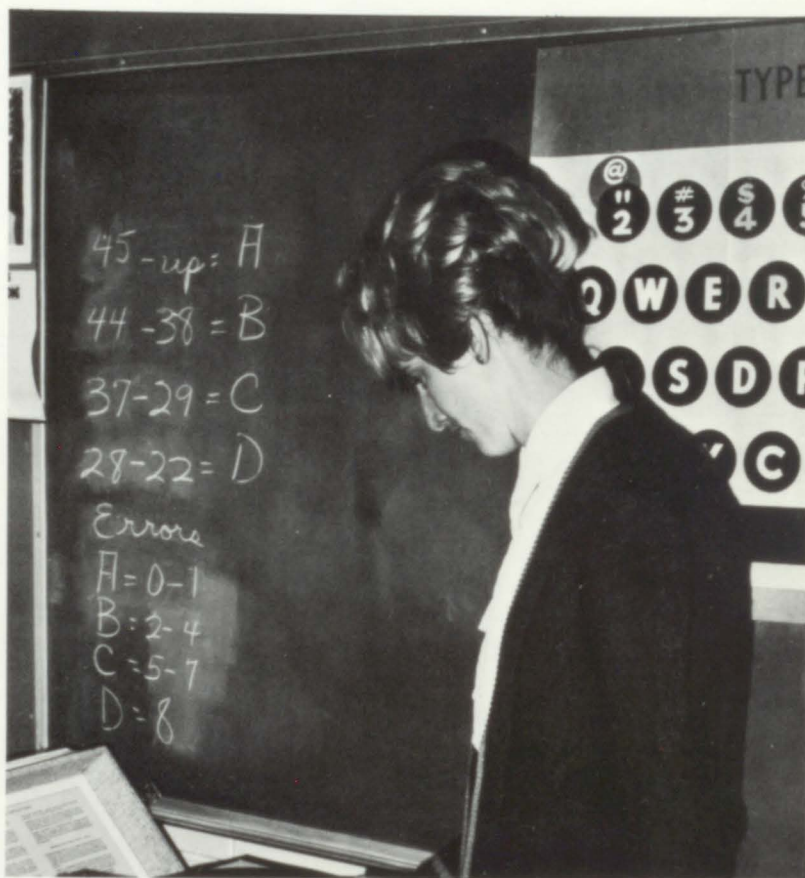 45-up = A
44-38 = B
37-29 = C
28-22 = D
Errors
A = 0-1
B = 2-4
C = 5-7
D = 8
TYPE
@ # $
" 2 3 4
Q W E R
S D
C